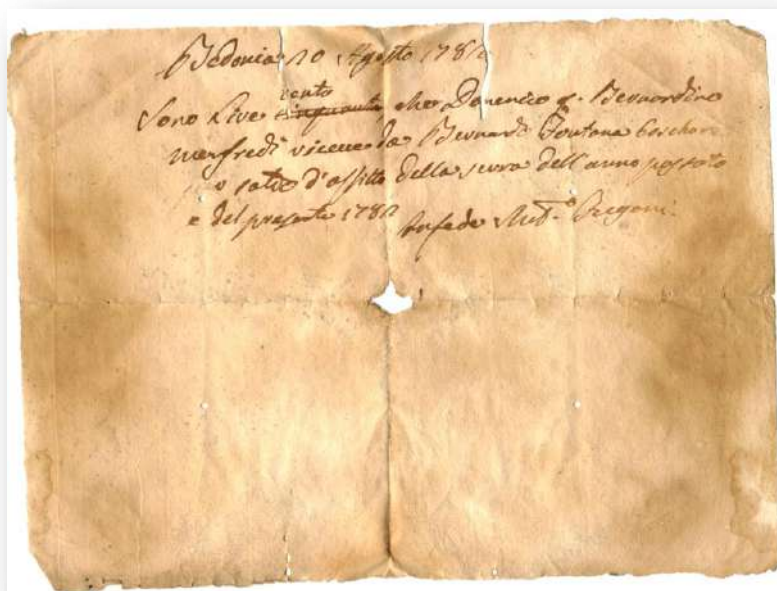 Bedonia 20 Agosto 1782
cento
Sono Lire cinquanta che Domenico q. Bernardino
Manfredi riceve da Bernardo Fontana
saldo d'affitto della serra dell'anno passato
e del presente 1782 In fede Ant.o